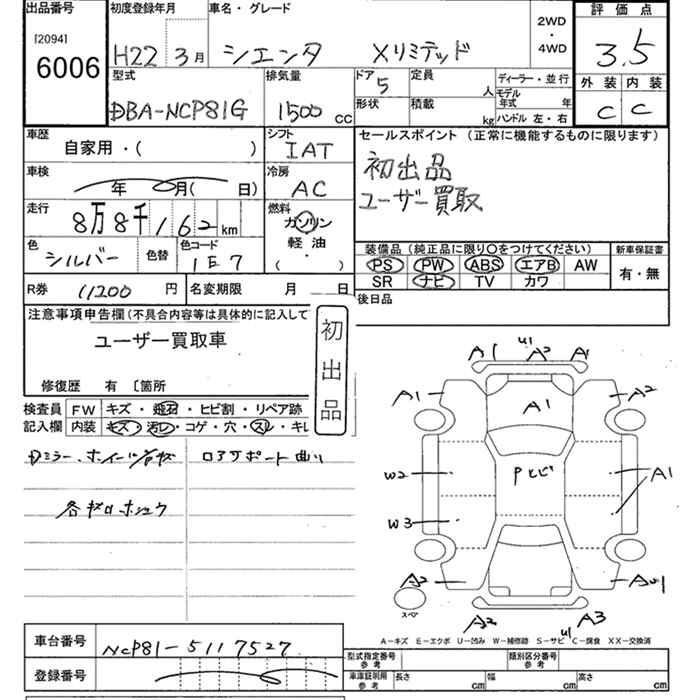 出品番号
[2094]
6006
初度登録年月
H22 3月
車名・グレード
シエンタ Xリミテッド
2WD
・
4WD
評価点
3.5
型式
DBA-NCP81G
排気量
1500 CC
ドア 5
定員 人
形状
積載 kg
ディーラー・並行
モデル年式 年
ハンドル 左・右
外装 内装
C C
車歴
自家用・( )
シフト
IAT
セールスポイント (正常に機能するものに限ります)
初出品
ユーザー買取
車検
年 月( 日)
冷房
AC
走行
8万8千162 km
燃料
ガソリン
軽油
( )
色
シルバー
色替
色コード
1E7
装備品(純正品に限り○をつけてください)
PS PW ABS エアB AW
SR ナビ TV カワ
新車保証書
有・無
R券 11200 円
名変期限 月 日
後日品
注意事項申告欄(不具合内容等は具体的に記入して
ユーザー買取車
修復歴 有 〔箇所
初出品
検査員記入欄
FW キズ・飛石・ヒビ割・リペア跡
内装 キズ・汚レ・コゲ・穴・スレ・キレ
ロアサポート曲り
A1 U1 A2 A1
A1 A2
A1
W2 Pヒビ A1
W3
A2 AU1
スペア
A2 U1 A3
A-キズ E-エクボ U-凹み W-補修跡 S-サビ C-腐食 XX-交換済
車台番号
NCP81-5117527
登録番号
型式指定番号
参考
類別区分番号
参考
車庫証明用
参考
長さ cm
幅 cm
高さ cm